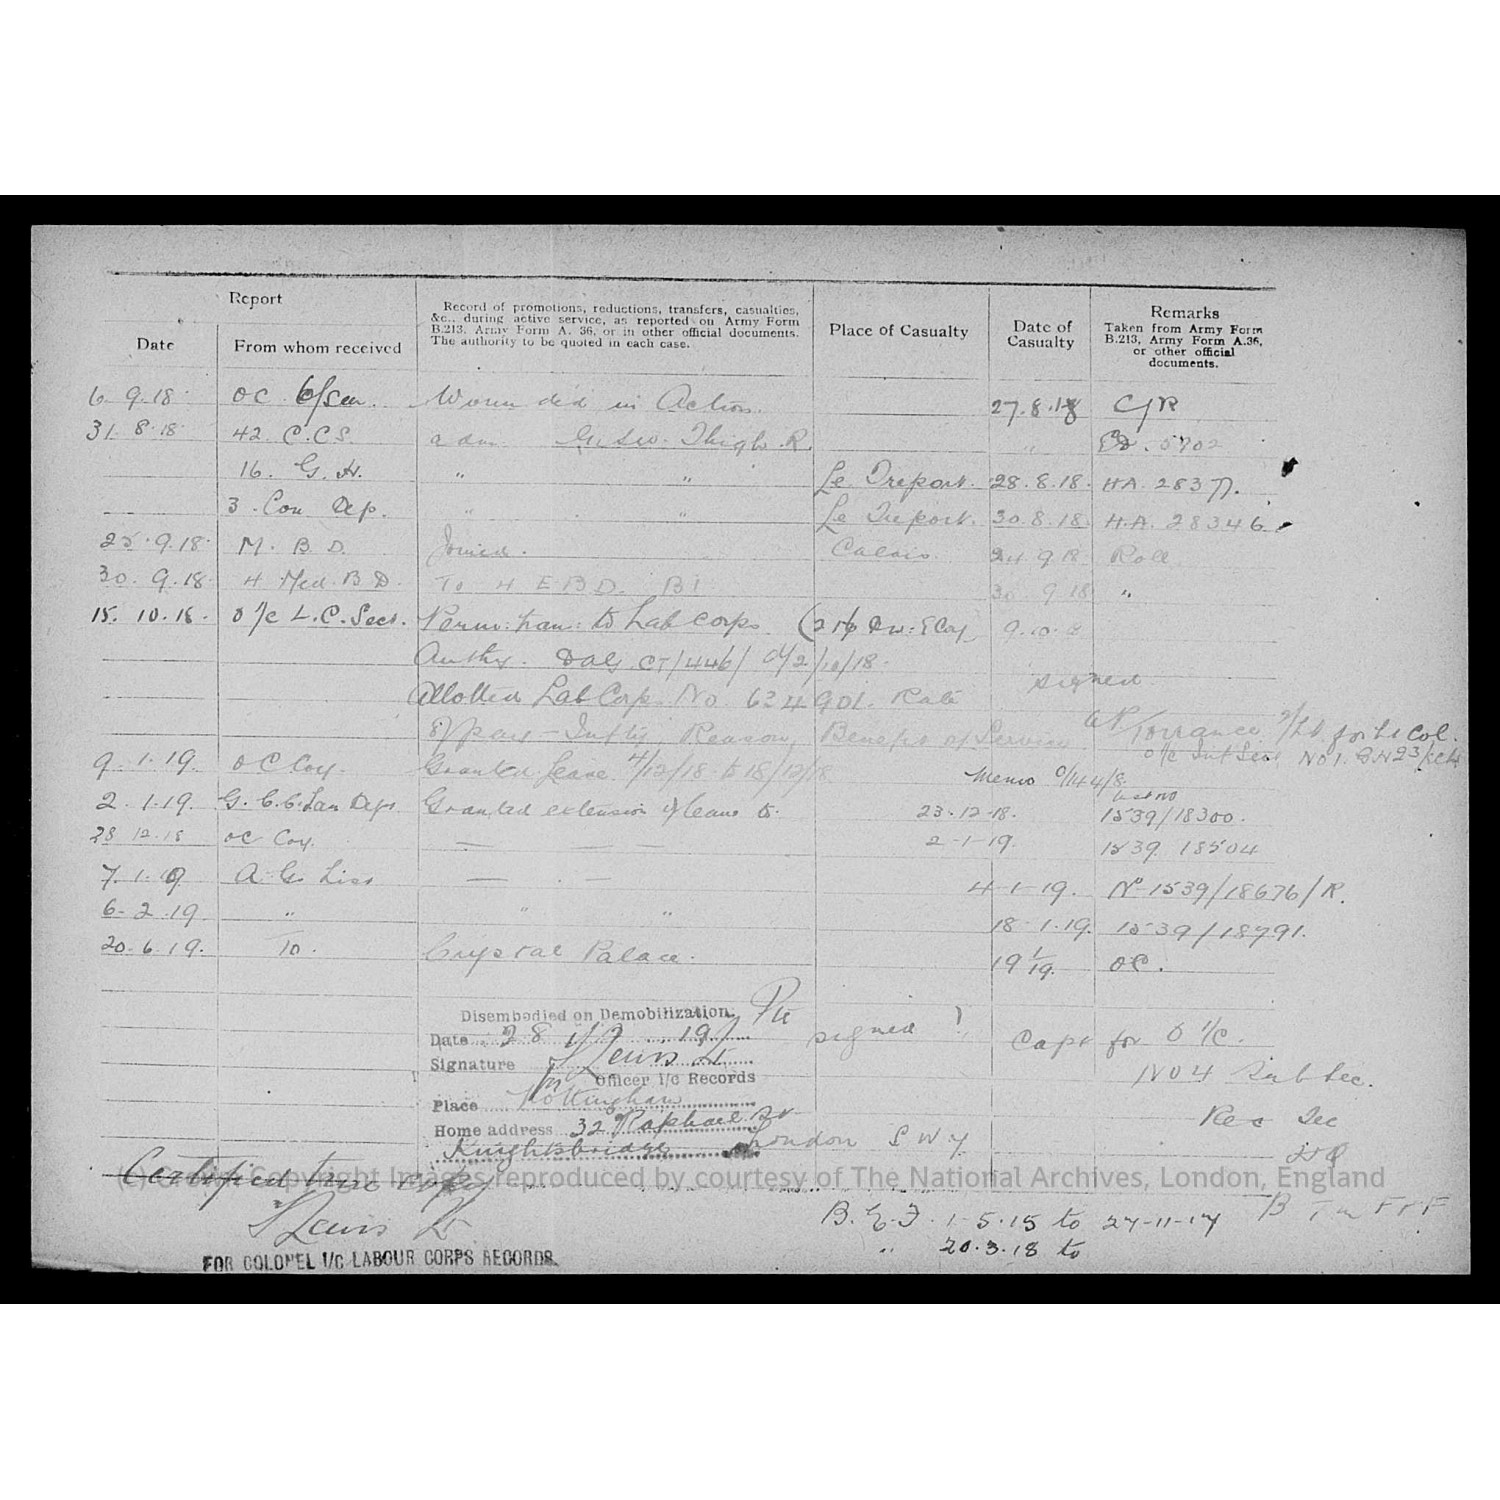 Report
Date
From whom received
Record of promotions, reductions, transfers, casualties,
&c., during active service, as reported on Army Form
B.213, Army Form A. 36, or in other official documents.
The authority to be quoted in each case.
Place of Casualty
Date of
Casualty
Remarks
Taken from Army Form
B.213, Army Form A.36,
or other official
documents.
6. 9.18 OC Wounded in Action. 27.8.18 C/R
31. 8.18 42 C.C.S. adm Thigh R. " 5702
16. G.H. " " Le Treport. 28.8.18. HA. 2837
3. Con Dep. " " Le Treport. 30.8.18. H.A. 28346.
25.9.18 M. B. D. Joined. Calais 24 9 18 Roll
30. 9.18 4 Med. B D. To 4 E.B.D. B1 30. 9 18 "
15. 10.18. O i/c L.C. Sect. Perm: tran: to Lab Corps (216 Div: E Coy 9.10.8
Authy. DAG CT/446/ d/2/10/18.
Allotted Lab Corps No. 634901. Rate signed
of pay - Inftry Reason, Benefit of Service Torrance Lt for Lt Col.
o/c Inf Sec No 1.
9. 1.19. OC Coy. Granted leave 4/12/18 to 18/12/18 Memo
2. 1.19. Granted extension of leave to 23.12.18. 1539/18300.
28 12.18 OC Coy. — — — 2-1-19. 1539 18504
7.1.19 A.G. List — . — 4-1-19. No 1539/18676/R.
6-2.19 " " " 18-1.19. 1539/18791.
20.6.19. To. Crystal Palace. 19 1/19. OC.
Disembodied on Demobilization. Pte
Date 28 19
Signature Lewis Lt
for Officer i/c Records
Place Nottingham
Home address 32 Raphael St
Knightsbridge London S W 7
signed !
Capt for O i/c.
No 4 Sub Sec.
Rec Sec
Certified true copy
(c) Crown Copyright Images reproduced by courtesy of The National Archives, London, England
Lewis Lt
FOR COLONEL I/C LABOUR CORPS RECORDS.
B.E.F. 1-5.15 to 27-11-17
" 20.3.18 to